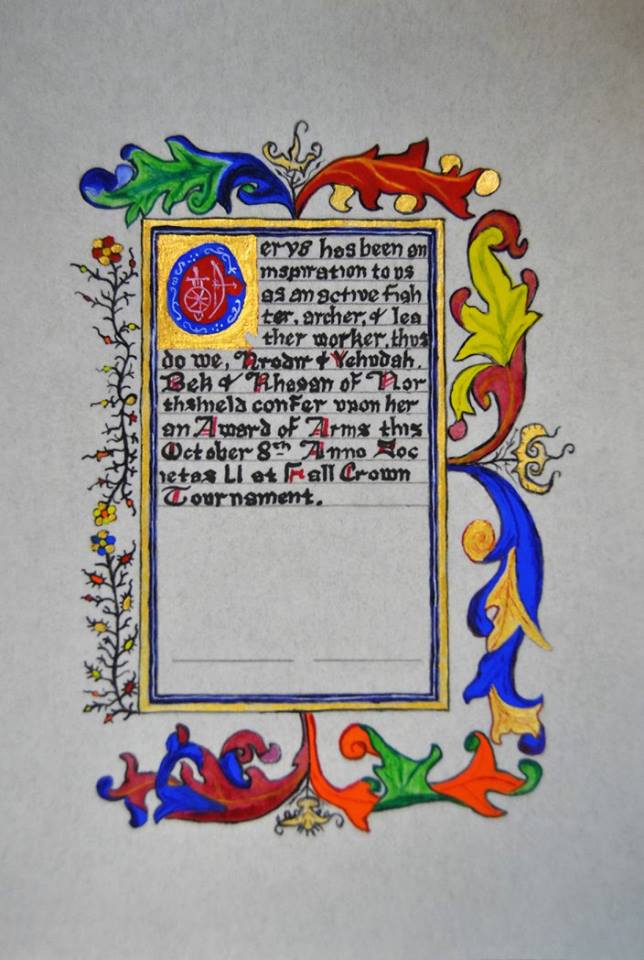 Cerys has been an
inspiration to us
as an active figh
ter, archer, & lea
ther worker, thus
do we, Hrodir & Yehudah,
Bek & Khagan of Nor
thshield confer upon her
an Award of Arms this
October 8th Anno Soc
ietas LI at Fall Crown
Tournament.